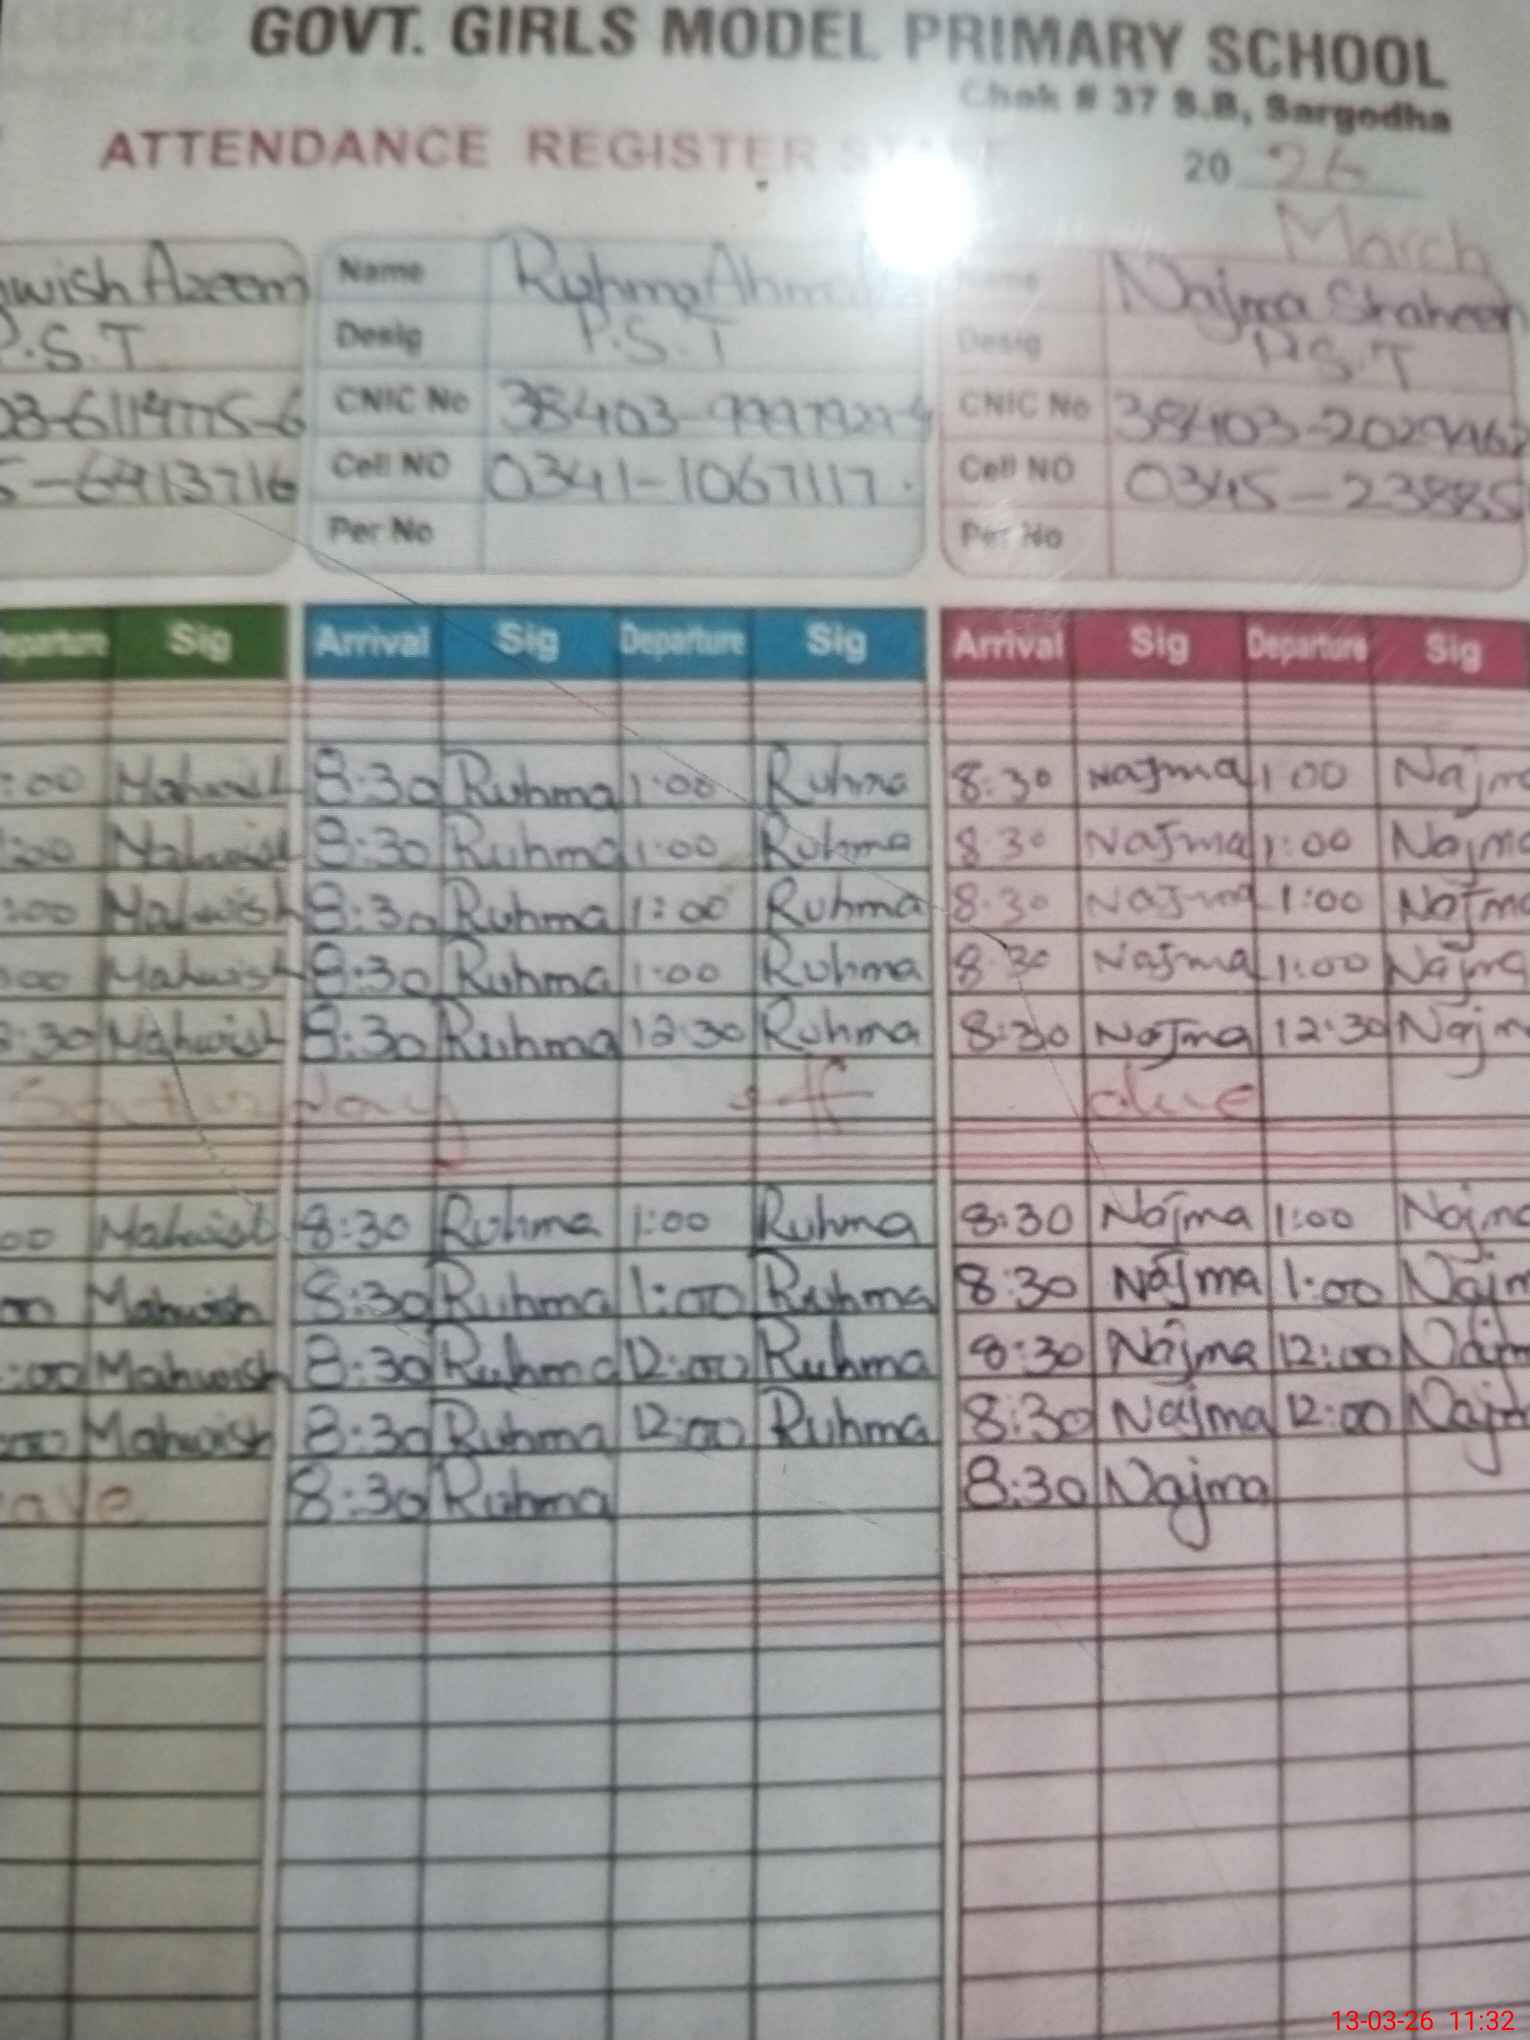 GOVT. GIRLS MODEL PRIMARY SCHOOL
Chak # 37 S.B, Sargodha
ATTENDANCE REGISTER
20 26
March
wish Azeem Name Ruhma Najma Shaheen
P.S.T Desig P.S.T Desig P.S.T
CNIC No CNIC No
Cell NO 0341-1067117 Cell NO 0345-23885
Per No Per No
Departure Sig Arrival Sig Departure Sig Arrival Sig Departure Sig
:00 Mahwish 8:30 Ruhma 1:00 Ruhma 8:30 Najma 1:00 Najma
:00 Mahwish 8:30 Ruhma 1:00 Ruhma 8:30 Najma 1:00 Najma
:00 Mahwish 8:30 Ruhma 1:00 Ruhma 8:30 Najma 1:00 Najma
:00 Mahwish 8:30 Ruhma 1:00 Ruhma 8:30 Najma 1:00 Najma
:30 Mahwish 8:30 Ruhma 12:30 Ruhma 8:30 Najma 12:30 Najm
Saturday off due
00 Mahwish 8:30 Ruhma 1:00 Ruhma 8:30 Najma 1:00 Najma
00 Mahwish 8:30 Ruhma 1:00 Ruhma 8:30 Najma 1:00 Najm
:00 Mahwish 8:30 Ruhma 12:00 Ruhma 8:30 Najma 12:00 Najm
:00 Mahwish 8:30 Ruhma 12:00 Ruhma 8:30 Najma 12:00 Najm
ave 8:30 Ruhma 8:30 Najma
13-03-26 11:32